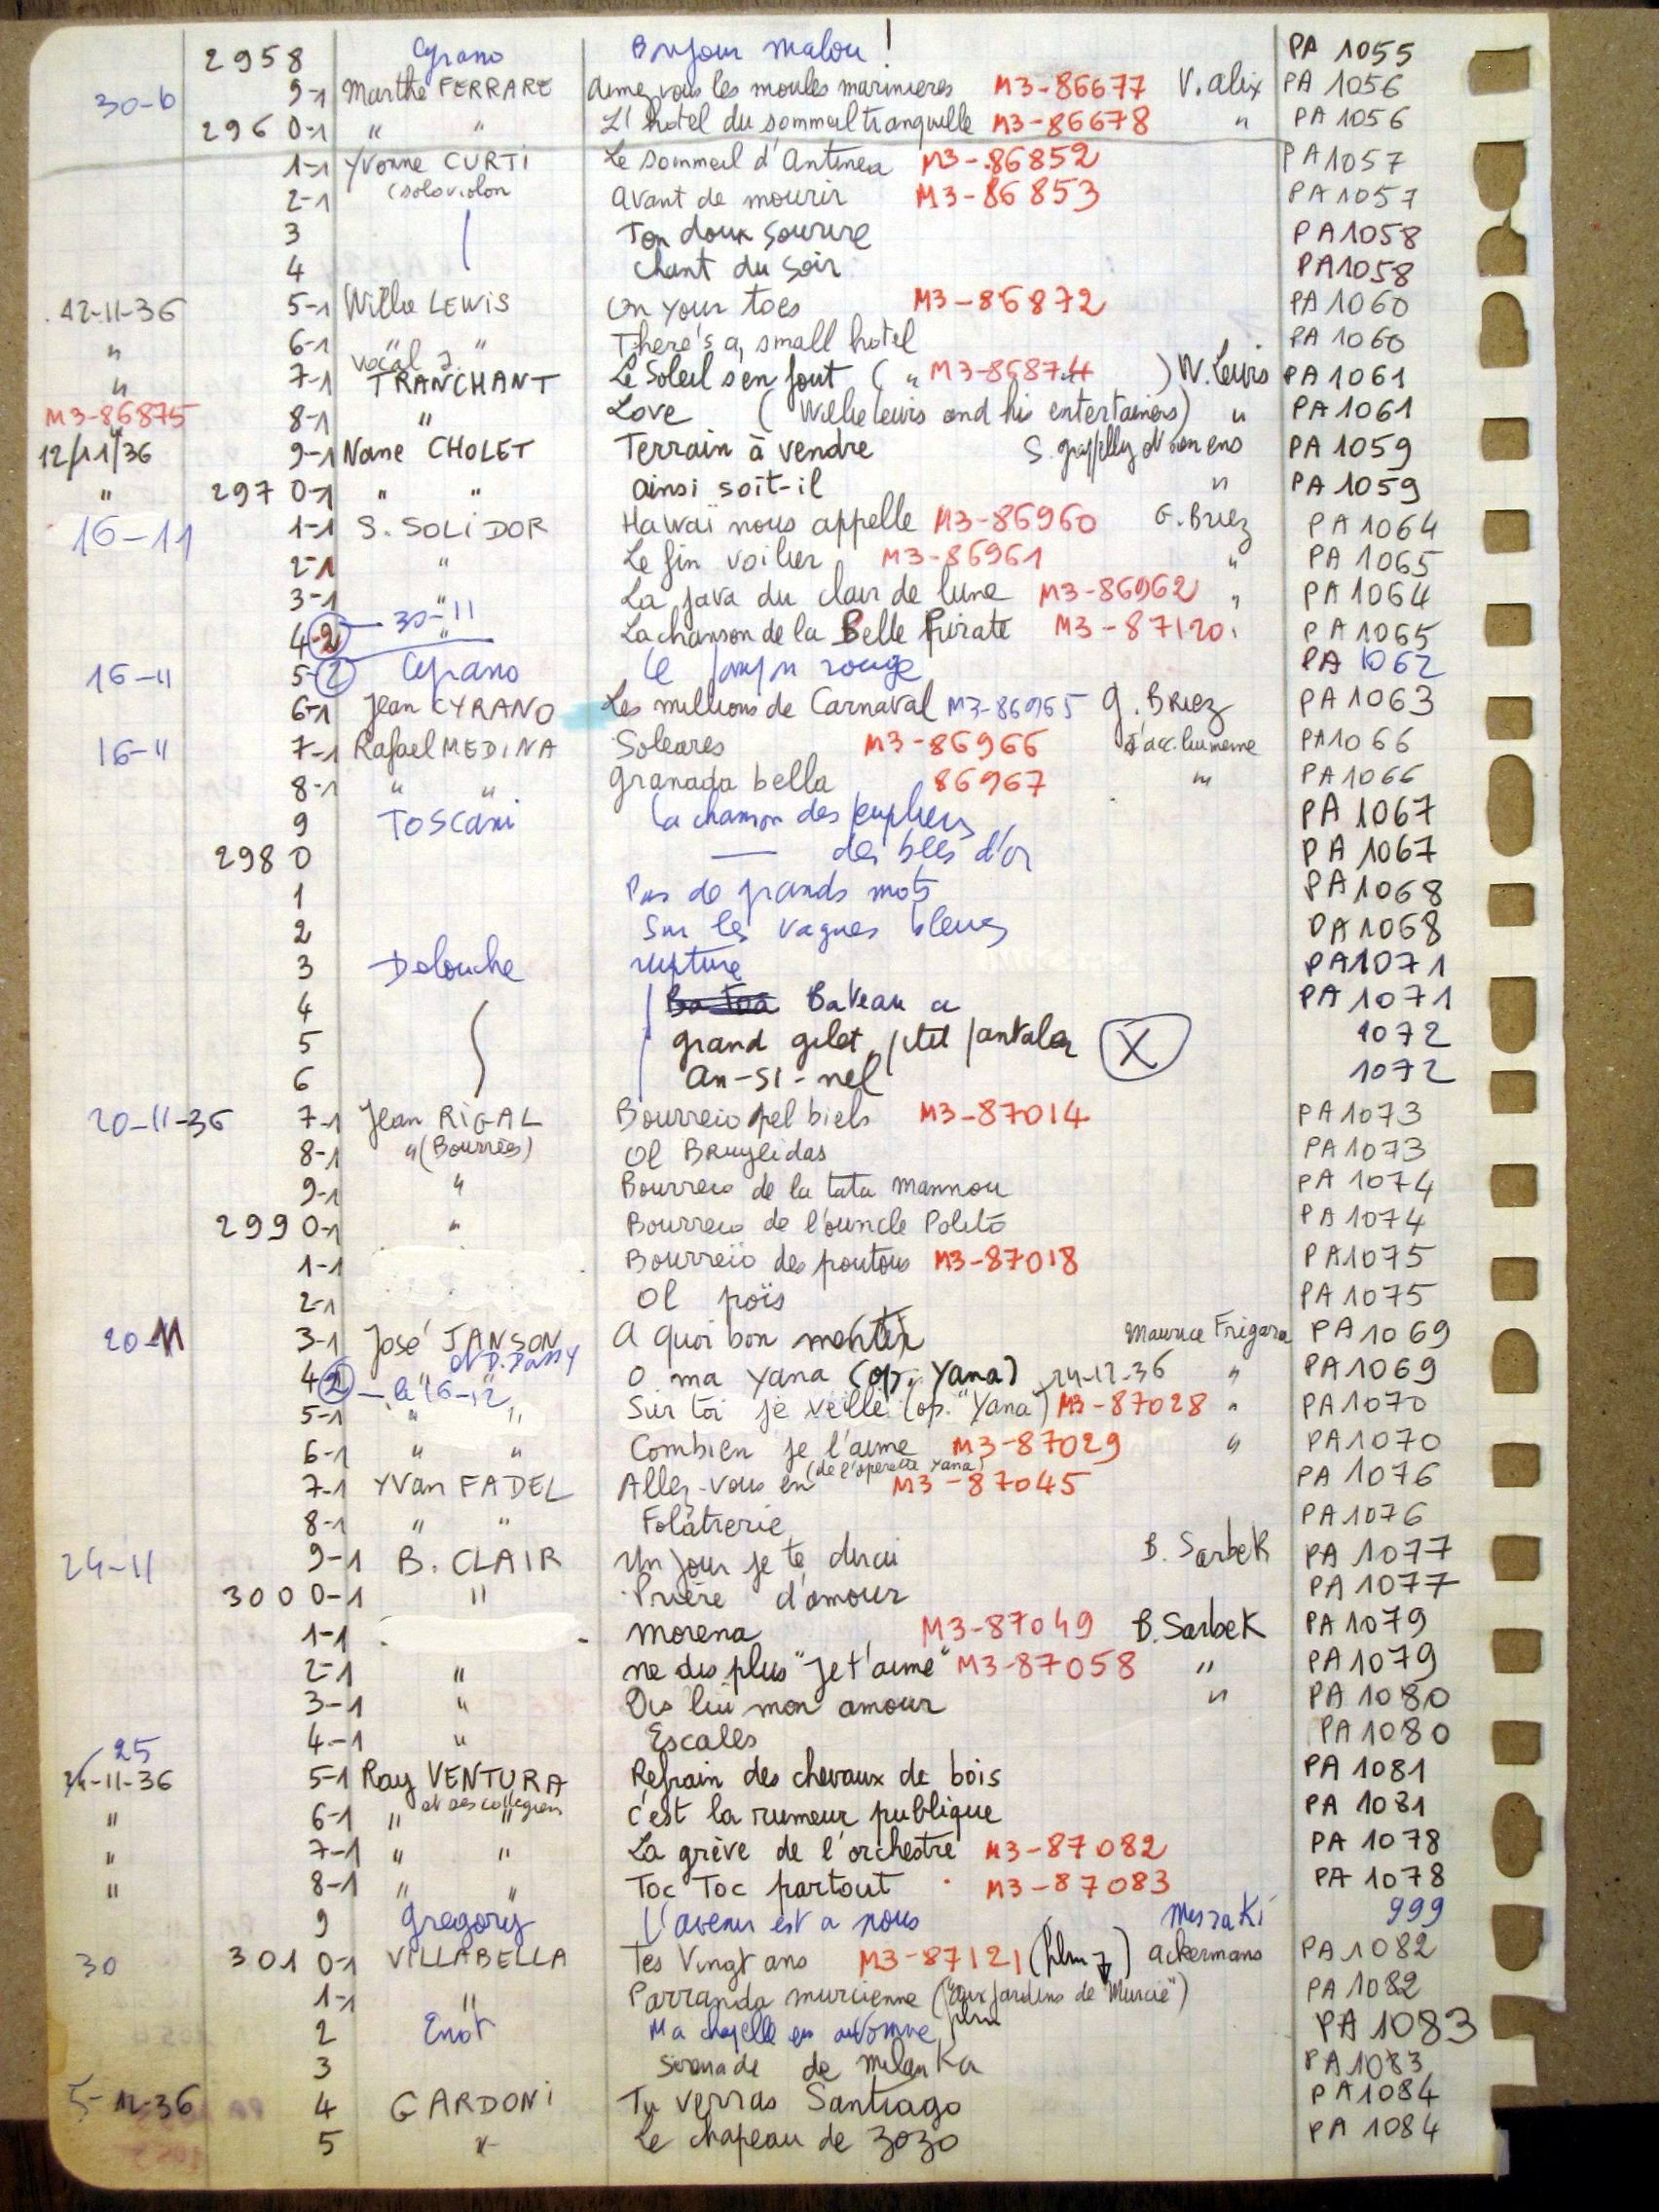 2958 Cyrano Bonjour Malou! PA 1055
30-6 9-1 Marthe FERRARE Aimez vous les moules marinieres M3-86677 V. Alix PA 1056
296 0-1 " " L'hotel du sommeil tranquille M3-86678 " PA 1056
1-1 Yvonne CURTI Le sommeil d'Antinea M3-86852 PA1057
2-1 (solo violon avant de mourir M3-86853 PA1057
3 Ton doux sourire PA1058
4 chant du soir PA1058
12-11-36 5-1 Willie LEWIS On your toes M3-86872 PA1060
" 6-1 " " There's a small hotel PA1060
" 7-1 vocal J. TRANCHANT Le Soleil s'en fout ( " M3-86874 ) W. Lewis PA1061
M3-86875 8-1 " Love (Willie Lewis and his entertainers) " PA1061
12/11/36 9-1 Nane CHOLET Terrain à vendre S. grappelly et son ens PA 1059
" 297 0-1 " " ainsi soit-il " PA 1059
16-11 1-1 S. SOLIDOR Hawaï nous appelle M3-86960 G. Briez PA 1064
2-1 " Le fin voilier M3-86961 " PA 1065
3-1 " La java du clair de lune M3-86962 " PA 1064
4-2 30-11 " La chanson de la Belle Pirate M3-87120 PA 1065
16-11 5-2 Cyrano Le rouge PA 1062
6-1 Jean CYRANO Les millions de Carnaval M3-86965 G. Briez PA 1063
16-11 7-1 Rafael MEDINA Soleares M3-86966 d'acc. lui meme PA1066
8-1 " " Granada bella 86967 " PA1066
9 Toscani La chanson des peupliers PA 1067
298 0 — des blés d'or PA 1067
1 Pas de grands mots PA1068
2 Sur les vagues bleues PA1068
3 Delouche rupture PA1071
4 Bateau a PA 1071
5 grand gilet, ptit pantalon X 1072
6 an-si-nel 1072
20-11-36 7-1 Jean RIGAL Bourreio pel biels M3-87014 PA1073
8-1 " (Bourrées) Ol Bruyeidas PA1073
9-1 " Bourreio de la tata mannou PA1074
299 0-1 " Bourreio de l'ouncle Polito PA1074
1-1 Bourreio des poutous M3-87018 PA1075
2-1 Ol poïs PA1075
20-11 3-1 José JANSON A quoi bon mentir Maurice Frigara PA1069
4-2 et D. Dassy " " O ma Yana (op. Yana) 24-12-36 " PA1069
— le 16-12
5-1 " " Sur toi je veille (op. "Yana") M3-87028 " PA1070
6-1 " " Combien je l'aime M3-87029 " PA1070
(de l'operette Yana)
7-1 Yvan FADEL Allez-vous en M3-87045 PA 1076
8-1 " " Folâtrerie PA1076
24-11 9-1 B. CLAIR Un jour je te dirai B. Sarbek PA 1077
300 0-1 " Prière d'amour PA 1077
1-1 morena M3-87049 B. Sarbek PA 1079
2-1 " ne dis plus "Je t'aime" M3-87058 " PA1079
3-1 " Dis lui mon amour " PA 1080
4-1 " Escales PA1080
25
24-11-36 5-1 Ray VENTURA Refrain des chevaux de bois PA 1081
et ses collegiens
" 6-1 " " c'est la rumeur publique PA 1081
" 7-1 " " La grève de l'orchestre M3-87082 PA 1078
" 8-1 " " Toc Toc partout M3-87083 PA 1078
9 Gregory L'avenir est a nous Misraki 999
30 301 0-1 VILLABELLA Tes Vingt ans M3-87121 (film ) Ackermans PA1082
1-1 " Parranda murcienne ("aux jardins de Murcie") PA 1082
film
2 Enot Ma chapelle en automne PA 1083
3 serenade de milanka PA1083
5-12-36 4 GARDONI Tu verras Santiago PA1084
5 " Le chapeau de zozo PA 1084